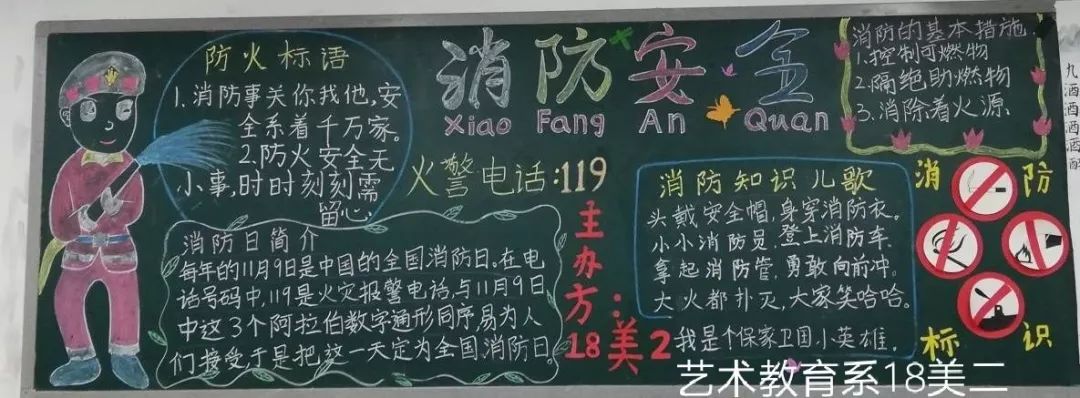 防火标语
1.消防事关你我他,安
全系着千万家。
2.防火安全无
小事,时时刻刻需
留心。
消防安全
Xiao Fang An Quan
火警电话:119
消防的基本措施
1.控制可燃物
2.隔绝助燃物
3.消除着火源
消防日简介
每年的11月9日是中国的全国消防日。在电
话号码中,119是火灾报警电话,与11月9日
中这3个阿拉伯数字通形同序,易为人
们接受,于是把这一天定为全国消防日
主办方:
18美2
消防知识儿歌
头戴安全帽,身穿消防衣。
小小消防员,登上消防车。
拿起消防管,勇敢向前冲。
大火都扑灭,大家笑哈哈。
我是个保家卫国小英雄.
消防
标识
九
酒
酒
酒
酒
艺术教育系18美二